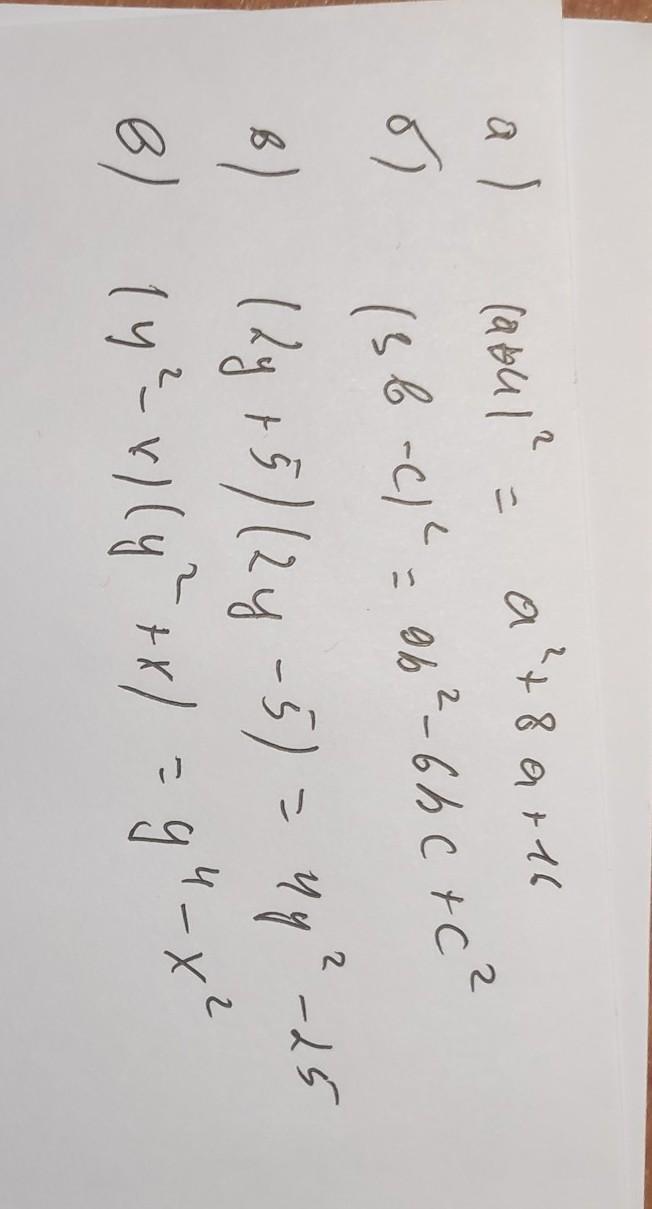 а) (a+4)² = a² + 8a + 16
б) (3b - c)² = 9b² - 6bc + c²
в) (2y + 5)(2y - 5) = 4y² - 25
в) (y² - x)(y² + x) = y⁴ - x²